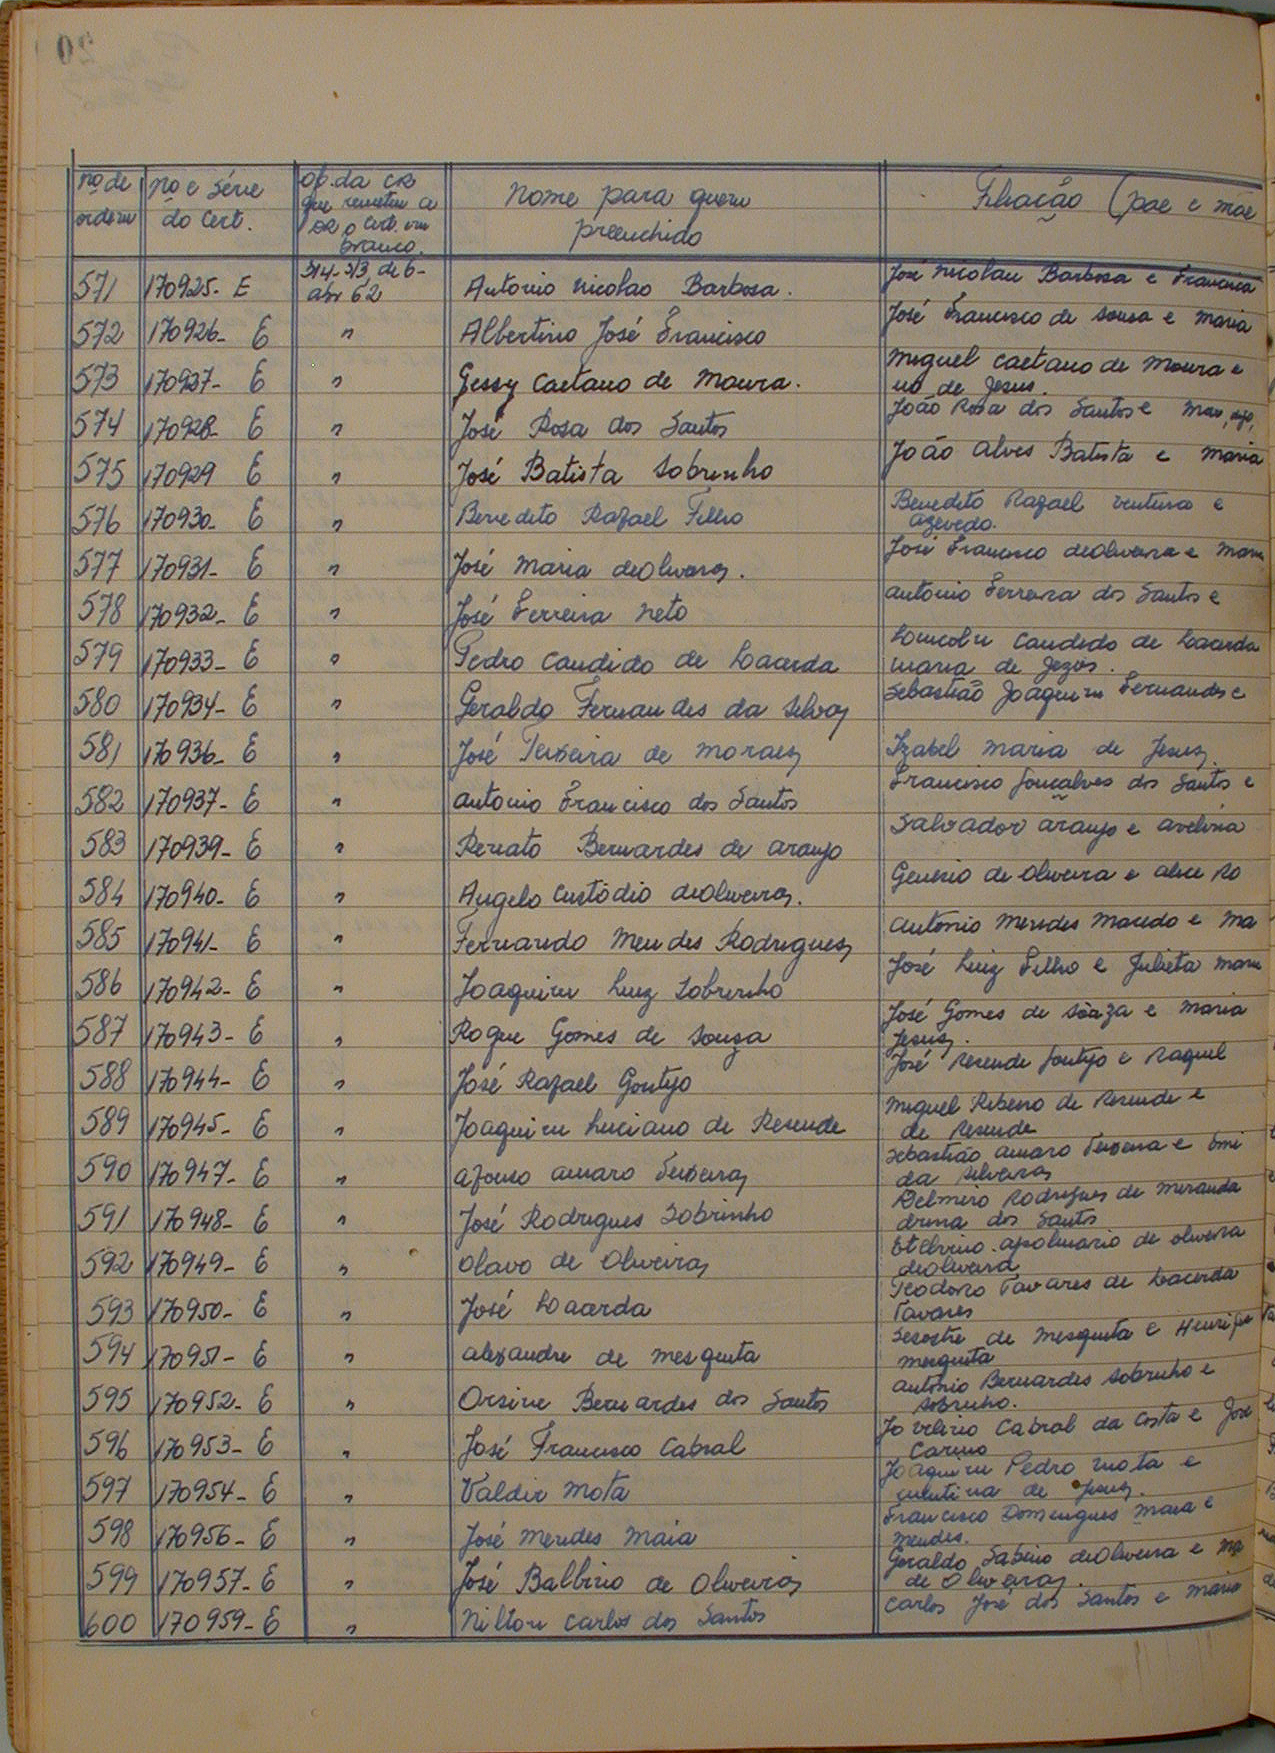 nº de ordem | nº e série do Cert. | of. da CR que remeteu a DR o cert. em branco. | nome para quem preenchido | Filiação (pae e mãe
571 | 170925- E | 314-S/3, de 6-abr 62 | Antonio nicolao Barbosa. | José nicolau Barbosa e Francisca
572 | 170926- E | " | Albertino José Francisco | José Francisco de sousa e maria
573 | 170927- E | " | Gessy Caetano de Moura. | miguel caetano de Moura e
no de Jesus.
574 | 170928- E | " | José Rosa dos Santos | João Rosa dos Santos e
575 | 170929 E | " | José Batista Sobrinho | João Alves Batista e maria
576 | 170930- E | " | Benedito Rafael Filho | Benedito Rafael ventura e
azevedo.
577 | 170931- E | " | José maria deoliveira. | José Francisco deoliveira e maria
578 | 170932- E | " | José Ferreira neto | antonio Ferreira dos Santos e
579 | 170933- E | " | Pedro candido de Lacerda | candido de Lacerda
maria de Jezus.
580 | 170934- E | " | Geraldo Fernandes da silva | Sebastião Joaquim Fernandes e
581 | 170936- E | " | José Teixeira de moraes | Izabel maria de Jesus.
582 | 170937- E | " | antonio Francisco dos Santos | Francisco Gonçalves dos Santos e
583 | 170939- E | " | Renato Bernardes de araujo | Salvador araujo e avelina
584 | 170940- E | " | Angelo Custódio deoliveira. | Genesio de oliveira e alice Ro
585 | 170941- E | " | Fernando Mendes Rodrigues | antonio mendes macedo e ma
586 | 170942- E | " | Joaquim Luiz Sobrinho | José Luiz Filho e Julieta maria
587 | 170943- E | " | Roque Gomes de Souza | José Gomes de soaza e maria
Jesus.
588 | 170944- E | " | José Rafael Gontijo | José Resende Gontijo e Raquel
589 | 170945- E | " | Joaquim Luciano de Resende | miguel Ribeiro de Resende e
de Resende
590 | 170947- E | " | afonso amaro Teixeira | Sebastião amaro Teixeira e Emi
da silveira
591 | 170948- E | " | José Rodrigues Sobrinho | Delmiro Rodrigues de miranda
drina dos Santos
592 | 170949- E | " | olavo de Oliveira | Etelvino apolinario de oliveira
deoliveira
593 | 170950- E | " | José Lacerda | Teodoro Tavares de Lacerda
Tavares
594 | 170951- E | " | alexandre de mesquita | Sesostre de mesquita e Henriqu
mesquita
595 | 170952- E | " | Orsine Bernardes dos Santos | antonio Bernardes sobrinho e
sobrinho.
596 | 170953- E | " | José Francisco Cabral | Jovelino Cabral da Costa e José
Carino
597 | 170954- E | " | Valdir mota | Joaquim Pedro mota e
de Jesus.
598 | 170956- E | " | José mendes maia | Francisco Domingues maia e
mendes.
599 | 170957- E | " | José Balbino de Oliveira | Geraldo Sabino deoliveira e ma
de Oliveira.
600 | 170959- E | " | Nilton Carlos dos Santos | Carlos José dos Santos e maria